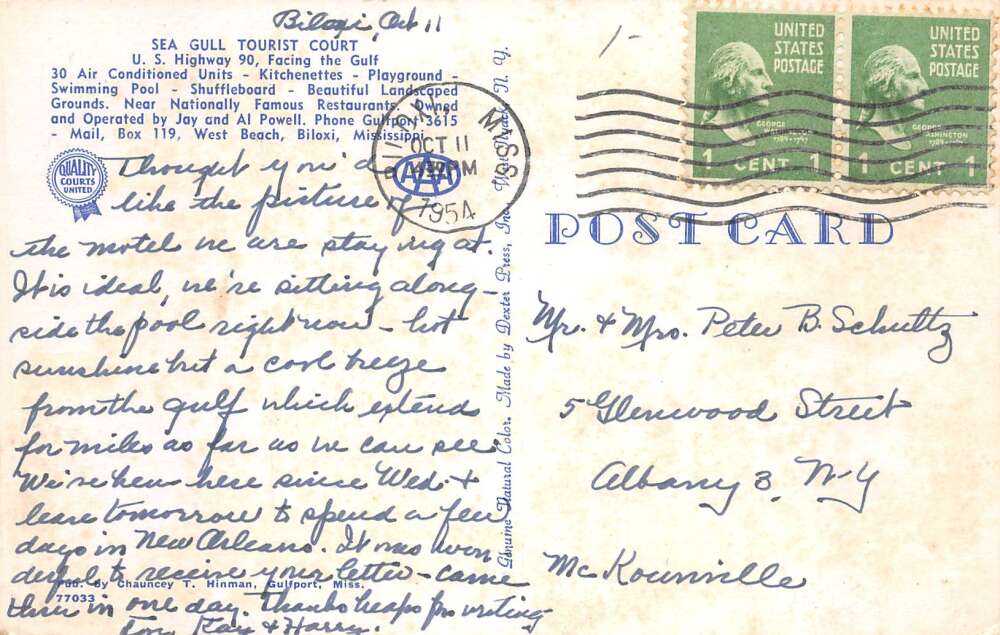 Biloxi, Oct 11
SEA GULL TOURIST COURT
U. S. Highway 90, Facing the Gulf
30 Air Conditioned Units - Kitchenettes - Playground -
Swimming Pool - Shuffleboard - Beautiful Landscaped
Grounds. Near Nationally Famous Restaurants. Owned
and Operated by Jay and Al Powell. Phone Gulfport 3615
- Mail, Box 119, West Beach, Biloxi, Mississippi
QUALITY
COURTS
UNITED
AAA
MISS
OCT 11
PM
1954
Thought you'd
like the picture of
the motel we are staying at.
It is ideal, we're sitting along-
side the pool right now - hot
sunshine but a cool breeze
from the gulf which extends
for miles as far as we can see.
We've been here since Wed. &
leave tomorrow to spend a few
days in New Orleans. It was won
derful to receive your letter - came
thru in one day. Thanks heaps for writing
Kay & Harry.
Pub. by Chauncey T. Hinman, Gulfport, Miss.
77033
Genuine Natural Color. Made by Dexter Press, Inc., West Nyack, N. Y.
1-
UNITED
STATES
POSTAGE
GEORGE
WASHINGTON
1789-1797
1 CENT 1
UNITED
STATES
POSTAGE
GEORGE
WASHINGTON
1789-1797
1 CENT 1
POST CARD
Mr. & Mrs. Peter B. Schultz
5 Glenwood Street
Albany 3, N Y
McKownville